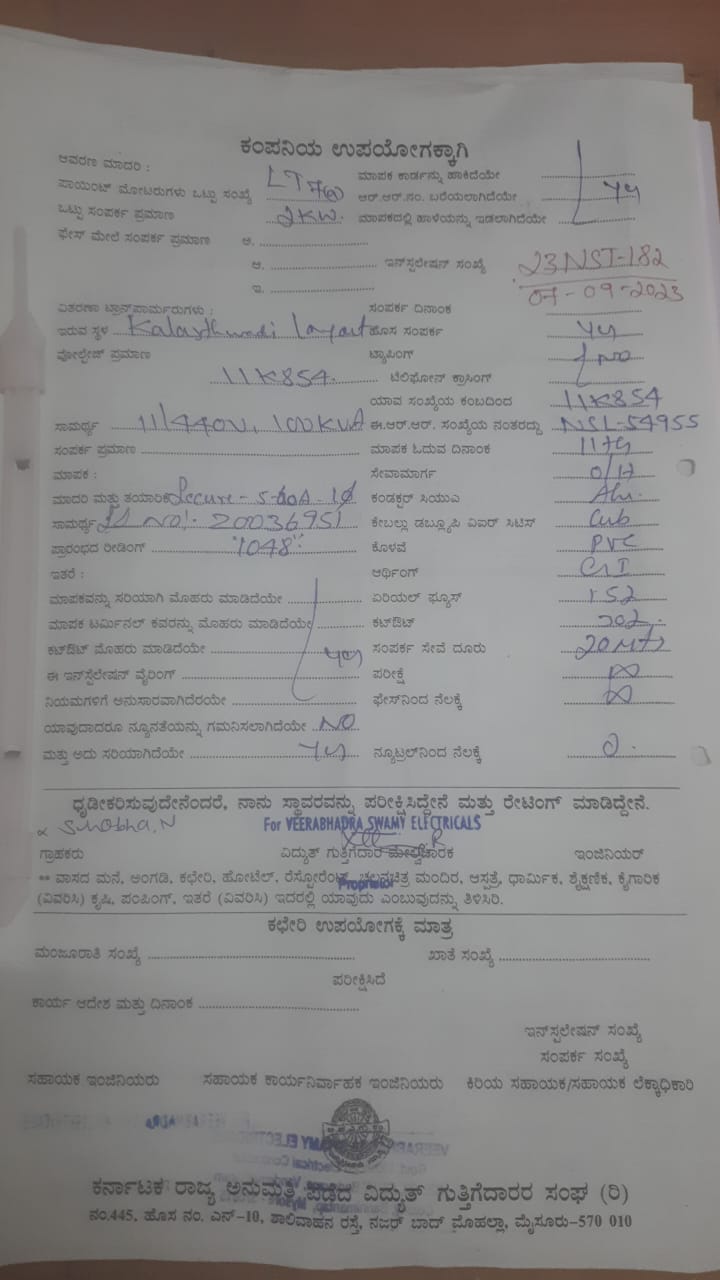 ಕಂಪನಿಯ ಉಪಯೋಗಕ್ಕಾಗಿ
ಆವರಣ ಮಾದರಿ : ಮಾಪಕ ಕಾರ್ಡನ್ನು ಹಾಕಿದೆಯೇ
ಪಾಯಿಂಟ್ ಮೋಟರುಗಳು ಒಟ್ಟು ಸಂಖ್ಯೆ LT ಆರ್.ಆರ್.ನಂ. ಬರೆಯಲಾಗಿದೆಯೇ yes
ಒಟ್ಟು ಸಂಪರ್ಕ ಪ್ರಮಾಣ 2KW. ಮಾಪಕದಲ್ಲಿ ಹಾಳೆಯನ್ನು ಇಡಲಾಗಿದೆಯೇ
ಫೇಸ್ ಮೇಲೆ ಸಂಪರ್ಕ ಪ್ರಮಾಣ ಆ.
ಆ. ಇನ್‌ಸ್ಟಲೇಷನ್ ಸಂಖ್ಯೆ 23NST-182
ಇ. 07-09-2023
ವಿತರಣಾ ಟ್ರಾನ್ಸ್‌ಫಾರ್ಮರುಗಳು : ಸಂಪರ್ಕ ದಿನಾಂಕ
ಇರುವ ಸ್ಥಳ Kalasthwadi Layout ಹೊಸ ಸಂಪರ್ಕ yes
ವೋಲ್ಟೇಜ್ ಪ್ರಮಾಣ ಟ್ಯಾಪಿಂಗ್ NO
11K854. ಟೆಲಿಫೋನ್ ಕ್ರಾಸಿಂಗ್
ಯಾವ ಸಂಖ್ಯೆಯ ಕಂಬದಿಂದ 11K854
ಸಾಮರ್ಥ್ಯ 11/440V, 100KVA ಈ.ಆರ್.ಆರ್. ಸಂಖ್ಯೆಯ ನಂತರದ್ದು NSL-54955
ಸಂಪರ್ಕ ಪ್ರಮಾಣ ಮಾಪಕ ಓದುವ ದಿನಾಂಕ 11th
ಮಾಪಕ : ಸೇವಾಮಾರ್ಗ O/H
ಮಾದರಿ ಮತ್ತು ತಯಾರಿಕೆ Secure - 5-60A-1Ø ಕಂಡಕ್ಟರ್ ಸಿಯುಎ Alu.
ಸಾಮರ್ಥ್ಯ Sl No:- 20036951 ಕೇಬಲ್ಲು ಡಬ್ಲ್ಯೂಪಿ ವಿಐರ್ ಸಿಟಿಸ್ Cub
ಪ್ರಾರಂಭದ ರೀಡಿಂಗ್ "1048" ಕೊಳವೆ PVC
ಇತರೆ : ಆರ್ಥಿಂಗ್ GI
ಮಾಪಕವನ್ನು ಸರಿಯಾಗಿ ಮೊಹರು ಮಾಡಿದೆಯೇ ಏರಿಯಲ್ ಫ್ಯೂಸ್
ಮಾಪಕ ಟರ್ಮಿನಲ್ ಕವರನ್ನು ಮೊಹರು ಮಾಡಿದೆಯೇ ಕಟ್‌ಔಟ್
ಕಟ್‌ಔಟ್ ಮೊಹರು ಮಾಡಿದೆಯೇ yes ಸಂಪರ್ಕ ಸೇವೆ ದೂರು 20Mts
ಈ ಇನ್‌ಸ್ಟಲೇಷನ್ ವೈರಿಂಗ್ ಪರೀಕ್ಷೆ ∞
ನಿಯಮಗಳಿಗೆ ಅನುಸಾರವಾಗಿದೆರಯೇ ಫೇಸ್‌ನಿಂದ ನೆಲಕ್ಕೆ ∞
ಯಾವುದಾದರೂ ನ್ಯೂನತೆಯನ್ನು ಗಮನಿಸಲಾಗಿದೆಯೇ NO
ಮತ್ತು ಅದು ಸರಿಯಾಗಿದೆಯೇ yes ನ್ಯೂಟ್ರಲ್‌ನಿಂದ ನೆಲಕ್ಕೆ 0.
ಧೃಡೀಕರಿಸುವುದೇನೆಂದರೆ, ನಾನು ಸ್ಥಾವರವನ್ನು ಪರೀಕ್ಷಿಸಿದ್ದೇನೆ ಮತ್ತು ರೇಟಿಂಗ್ ಮಾಡಿದ್ದೇನೆ.
Shobha.N For VEERABHADRA SWAMY ELECTRICALS
ಗ್ರಾಹಕರು ವಿದ್ಯುತ್ ಗುತ್ತಿಗೆದಾರ ಮೇಲ್ವಿಚಾರಕ ಇಂಜಿನಿಯರ್
Proprietor
** ವಾಸದ ಮನೆ, ಅಂಗಡಿ, ಕಛೇರಿ, ಹೋಟೆಲ್, ರೆಸ್ಟೋರೆಂಟ್, ಚಲನಚಿತ್ರ ಮಂದಿರ, ಆಸ್ಪತ್ರೆ, ಧಾರ್ಮಿಕ, ಶೈಕ್ಷಣಿಕ, ಕೈಗಾರಿಕ
(ವಿವರಿಸಿ) ಕೃಷಿ, ಪಂಪಿಂಗ್, ಇತರೆ (ವಿವರಿಸಿ) ಇದರಲ್ಲಿ ಯಾವುದು ಎಂಬುವುದನ್ನು ತಿಳಿಸಿರಿ.
ಕಛೇರಿ ಉಪಯೋಗಕ್ಕೆ ಮಾತ್ರ
ಮಂಜೂರಾತಿ ಸಂಖ್ಯೆ ಖಾತೆ ಸಂಖ್ಯೆ
ಪರೀಕ್ಷಿಸಿದೆ
ಕಾರ್ಯ ಆದೇಶ ಮತ್ತು ದಿನಾಂಕ
ಇನ್‌ಸ್ಪಲೇಷನ್ ಸಂಖ್ಯೆ
ಸಂಪರ್ಕ ಸಂಖ್ಯೆ
ಸಹಾಯಕ ಇಂಜಿನಿಯರು ಸಹಾಯಕ ಕಾರ್ಯನಿರ್ವಾಹಕ ಇಂಜಿನಿಯರು ಕಿರಿಯ ಸಹಾಯಕ/ಸಹಾಯಕ ಲೆಕ್ಕಾಧಿಕಾರಿ
ಕರ್ನಾಟಕ ರಾಜ್ಯ ಅನುಮತಿ ಪಡೆದ ವಿದ್ಯುತ್ ಗುತ್ತಿಗೆದಾರರ ಸಂಘ (ರಿ)
ನಂ.445, ಹೊಸ ನಂ. ಎನ್-10, ಶಾಲಿವಾಹನ ರಸ್ತೆ, ನಜರ್ ಬಾದ್ ಮೊಹಲ್ಲಾ, ಮೈಸೂರು-570 010